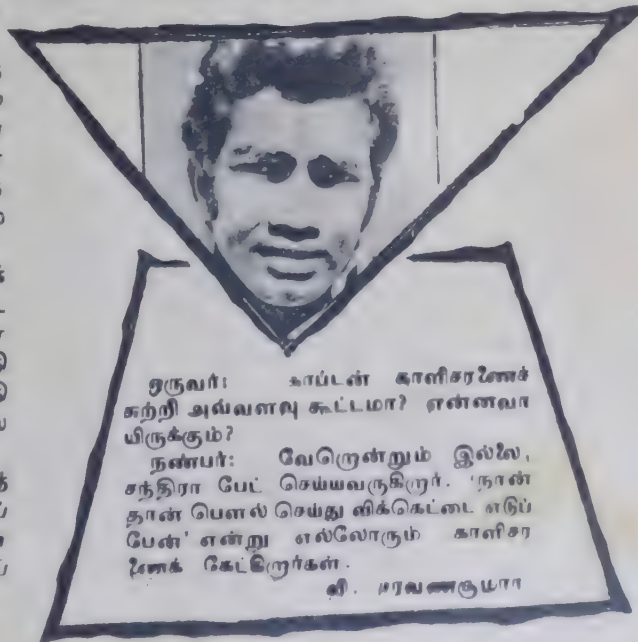 ஒருவர்: காப்டன் காளிசரணைச்
சுற்றி அவ்வளவு கூட்டமா? என்னவா
யிருக்கும்?
நண்பர்: வேறொன்றும் இல்லை,
சந்திரா பேட் செய்யவருகிறார். 'நான்
தான் பௌல் செய்து விக்கெட்டை எடுப்
பேன்' என்று எல்லோரும் காளிசர
ணைக் கேட்கிறார்கள்.
வி. சரவணகுமார்